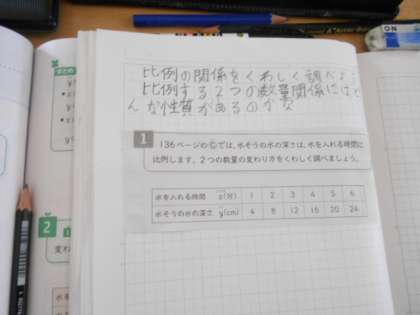 比例の関係をくわしく調べよう
比例する2つの数量関係にはど
んな性質があるのかな
1
136ページの©では、水そうの水の深さは、水を入れる時間に
比例します。2つの数量の変わり方をくわしく調べましょう。
水を入れる時間 x(分) 1 2 3 4 5 6
水そうの水の深さ y(cm) 4 8 12 16 20 24
まとめ
2
変わ
水を
水そ